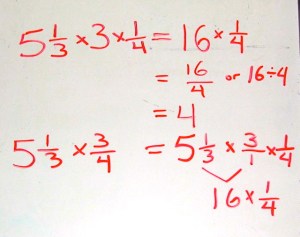 5 1/3 × 3 × 1/4 = 16 × 1/4
= 16/4 or 16÷4
= 4
5 1/3 × 3/4 = 5 1/3 × 3/1 × 1/4
16 × 1/4